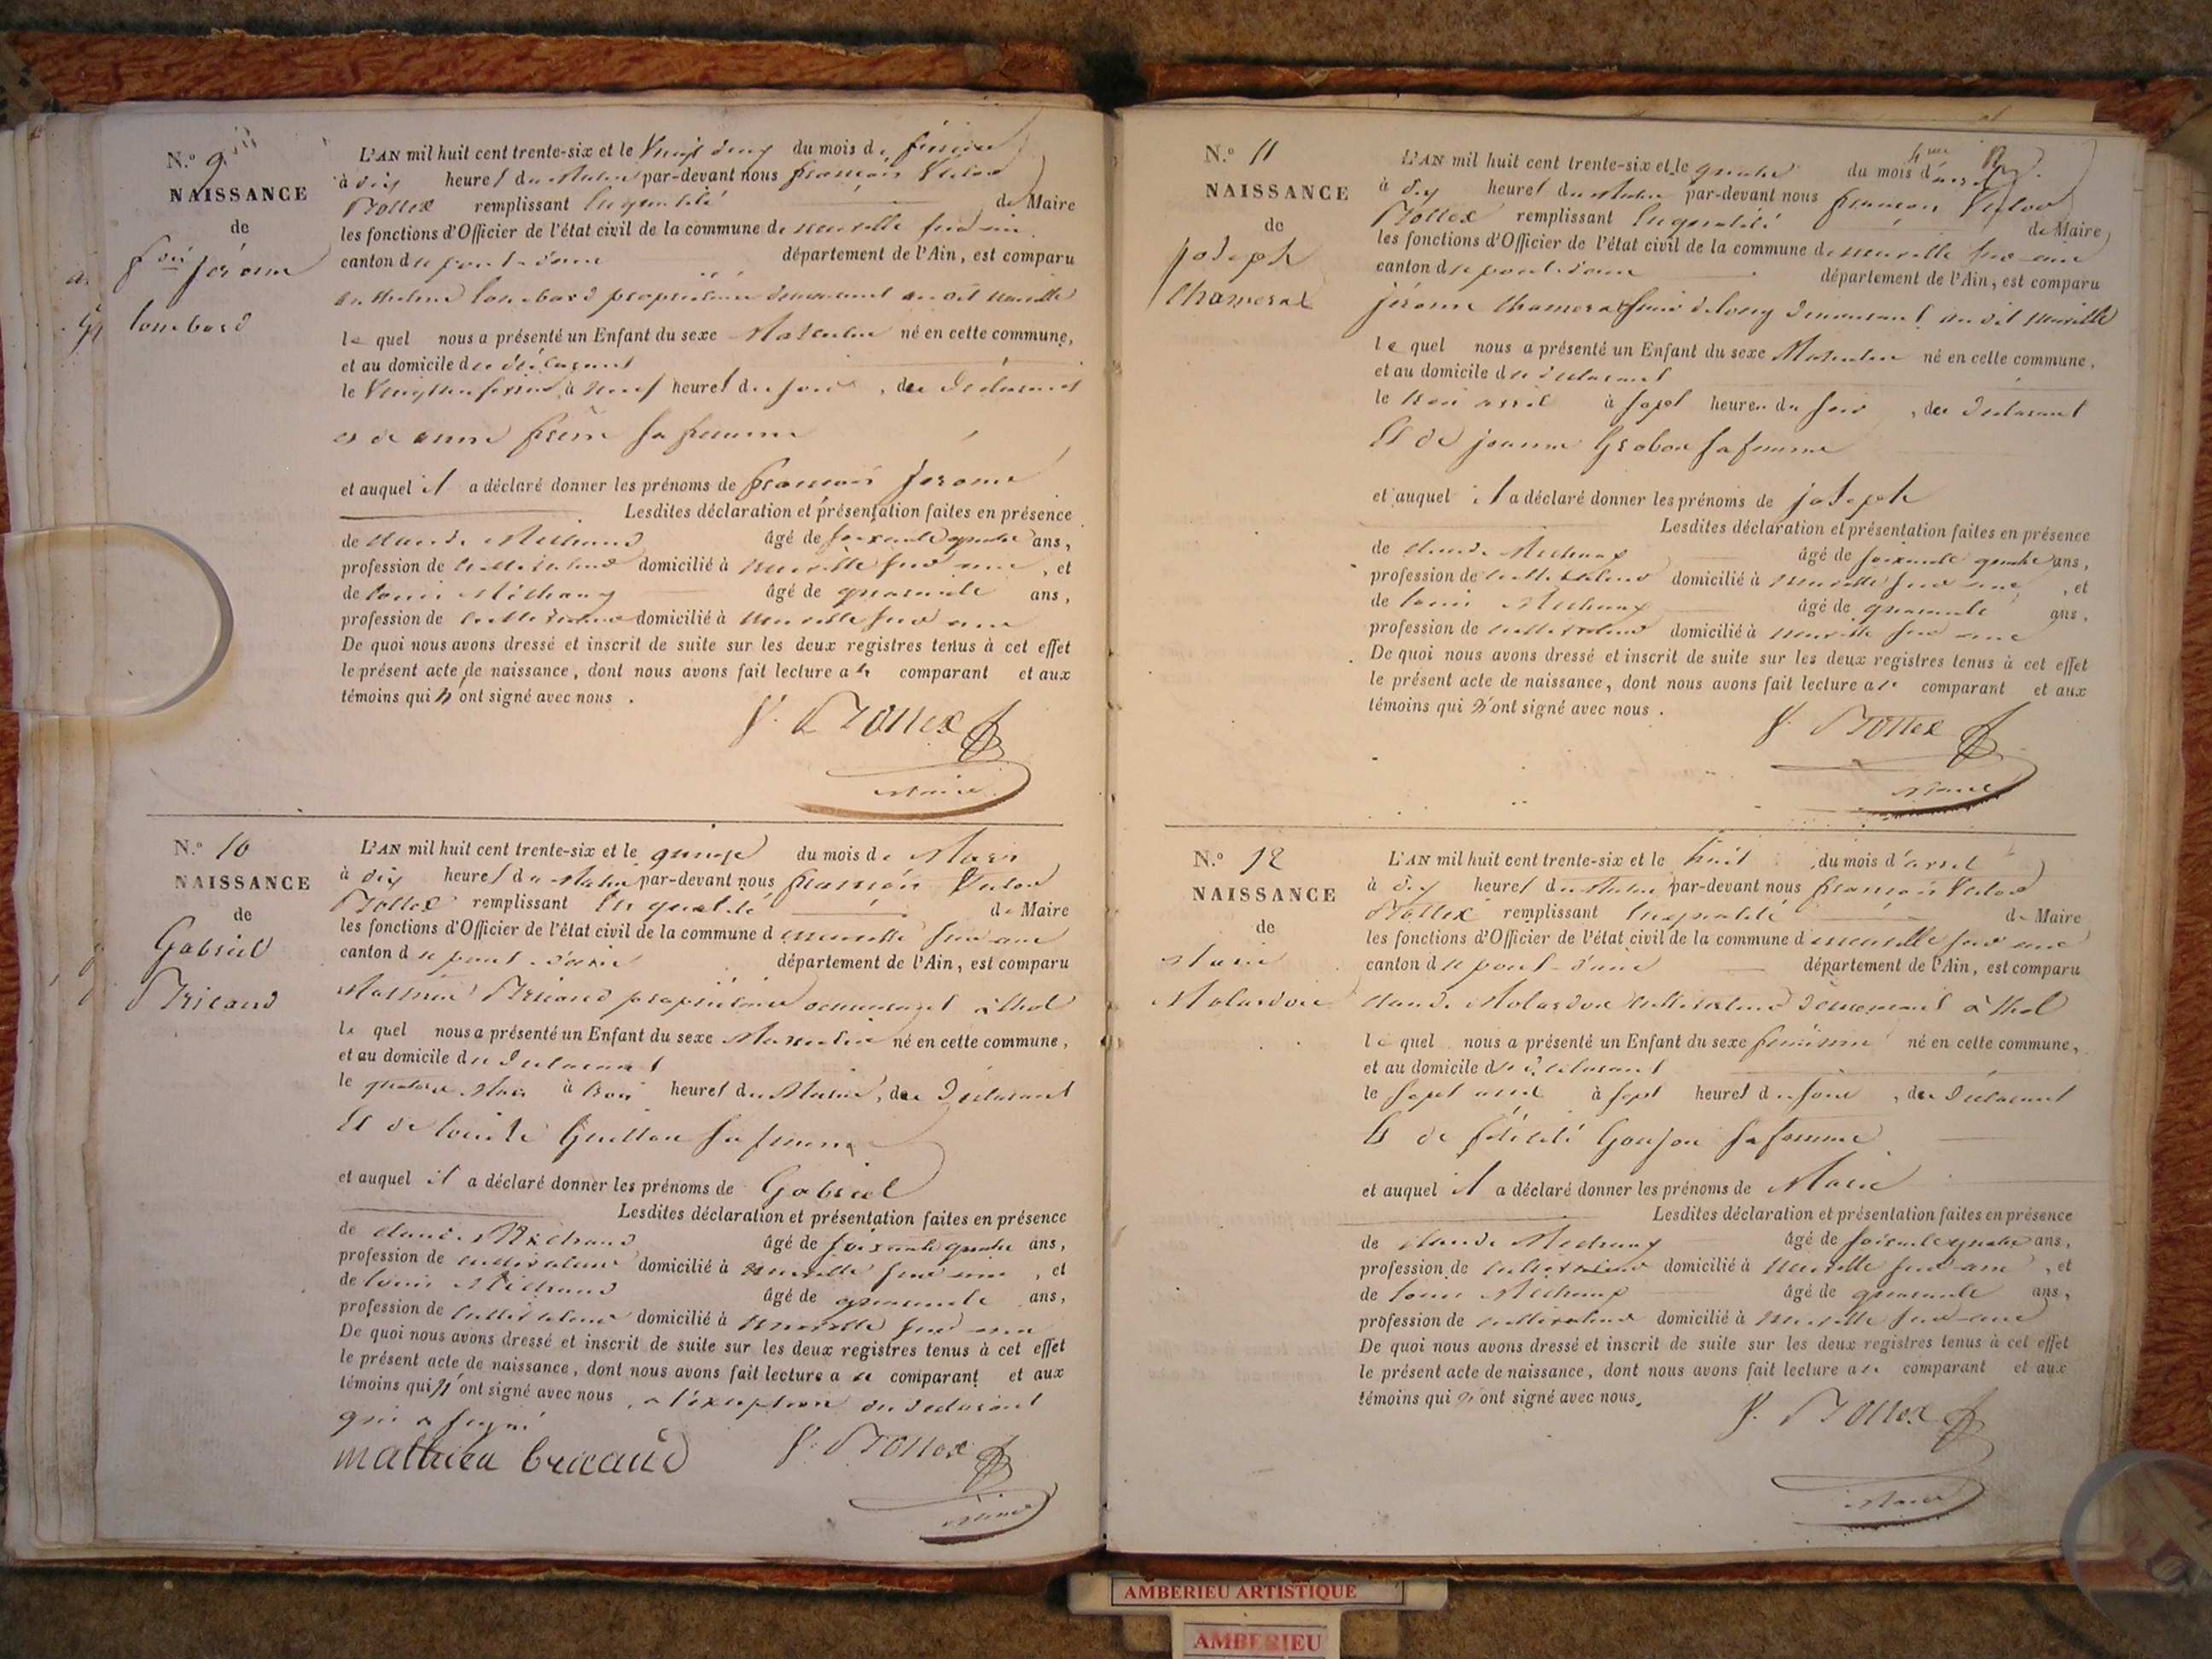 N.º 9
NAISSANCE
de
f.ois jérôme
lombard
L'AN mil huit cent trente-six et le Vingt deux du mois de février
à dix heures du Matin par-devant nous françois Victor
Bottex remplissant En qualité de Maire
les fonctions d'Officier de l'état civil de la commune de neuville sur ain
canton de pont-d'ain département de l'Ain, est comparu
anthelme lombard propriétaire demeurant au dit neuville
le quel nous a présenté un Enfant du sexe Masculin né en cette commune,
et au domicile du déclarant
le Vingt un février à neuf heures du soir, du déclarant
et de anne frère sa femme
et auquel il a déclaré donner les prénoms de françois jérome
Lesdites déclaration et présentation faites en présence
de claude Michaud âgé de soixante quatre ans,
profession de cultivateur domicilié à neuville sur ain, et
de louis Michaux âgé de quarante ans,
profession de cultivateur domicilié à neuville sur ain
De quoi nous avons dressé et inscrit de suite sur les deux registres tenus à cet effet
le présent acte de naissance, dont nous avons fait lecture au comparant et aux
témoins qui n'ont signé avec nous.
V. Bottex
Maire
N.º 10
NAISSANCE
de
Gabriel
Bricaud
L'AN mil huit cent trente-six et le quinze du mois de Mars
à dix heures du Matin par-devant nous françois Victor
Bottex remplissant En qualité de Maire
les fonctions d'Officier de l'état civil de la commune d neuville sur ain
canton de pont-d'ain département de l'Ain, est comparu
Mathieu Bricaud propriétaire demeurant à thol
le quel nous a présenté un Enfant du sexe Masculin né en cette commune,
et au domicile du déclarant
le quatorze Mars à trois heures du Matin, du Déclarant
Et de louise Guillon sa femme
et auquel il a déclaré donner les prénoms de Gabriel
Lesdites déclaration et présentation faites en présence
de claude Michaud âgé de soixante quatre ans,
profession de cultivateur domicilié à neuville sur ain, et
de louis Michaud âgé de quarante ans,
profession de cultivateur domicilié à neuville sur ain
De quoi nous avons dressé et inscrit de suite sur les deux registres tenus à cet effet
le présent acte de naissance, dont nous avons fait lecture au comparant et aux
témoins qui n'ont signé avec nous, a l'exception du déclarant
qui a signé
mathieu bricaud V. Bottex
Maire
N.º 11
NAISSANCE
de
joseph
Chamerat
L'AN mil huit cent trente-six et le quatre du mois d'avril
à dix heures du Matin par-devant nous françois Victor
Bottex remplissant En qualité de Maire
les fonctions d'Officier de l'état civil de la commune de neuville sur ain
canton de pont-d'ain département de l'Ain, est comparu
jérome Chamerat demeurant au dit neuville
le quel nous a présenté un Enfant du sexe Masculin né en cette commune,
et au domicile du déclarant
le trois avril à sept heures du soir, du déclarant
Et de jeanne Grobon sa femme
et auquel il a déclaré donner les prénoms de joseph
Lesdites déclaration et présentation faites en présence
de claude Michaux âgé de soixante quatre ans,
profession de cultivateur domicilié à neuville sur ain, et
de louis Michaux âgé de quarante ans,
profession de cultivateur domicilié à neuville sur ain
De quoi nous avons dressé et inscrit de suite sur les deux registres tenus à cet effet
le présent acte de naissance, dont nous avons fait lecture au comparant et aux
témoins qui n'ont signé avec nous.
V. Bottex
Maire
N.º 12
NAISSANCE
de
Marie
Molardoie
L'AN mil huit cent trente-six et le huit du mois d'avril
à dix heures du Matin par-devant nous françois Victor
Bottex remplissant En qualité de Maire
les fonctions d'Officier de l'état civil de la commune d neuville sur ain
canton de pont-d'ain département de l'Ain, est comparu
claude Molardoie cultivateur demeurant à thol
le quel nous a présenté un Enfant du sexe féminin né en cette commune,
et au domicile du déclarant
le sept avril à sept heures du soir, du déclarant
Et de félicité Goujon sa femme
et auquel il a déclaré donner les prénoms de Marie
Lesdites déclaration et présentation faites en présence
de claude Michaux âgé de soixante quatre ans,
profession de cultivateur domicilié à neuville sur ain, et
de louis Michaux âgé de quarante ans,
profession de cultivateur domicilié à neuville sur ain
De quoi nous avons dressé et inscrit de suite sur les deux registres tenus à cet effet
le présent acte de naissance, dont nous avons fait lecture au comparant et aux
témoins qui n'ont signé avec nous.
V. Bottex
Maire
AMBERIEU ARTISTIQUE
AMBERIEU